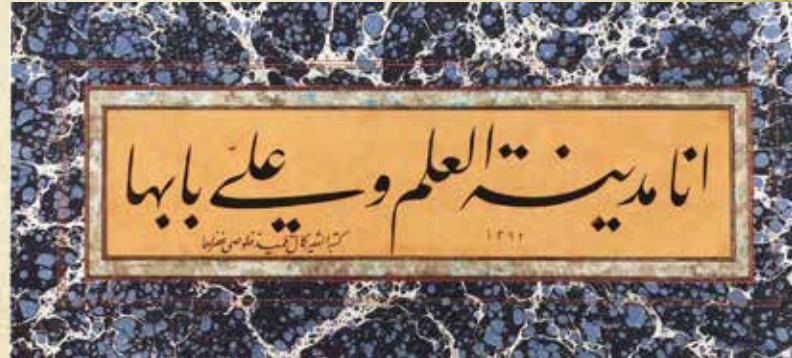 انا مدينة العلم و عليّ بابها
١٣٩٢
كتبه السيد كمال تلميذ خلوصي غفر لهما